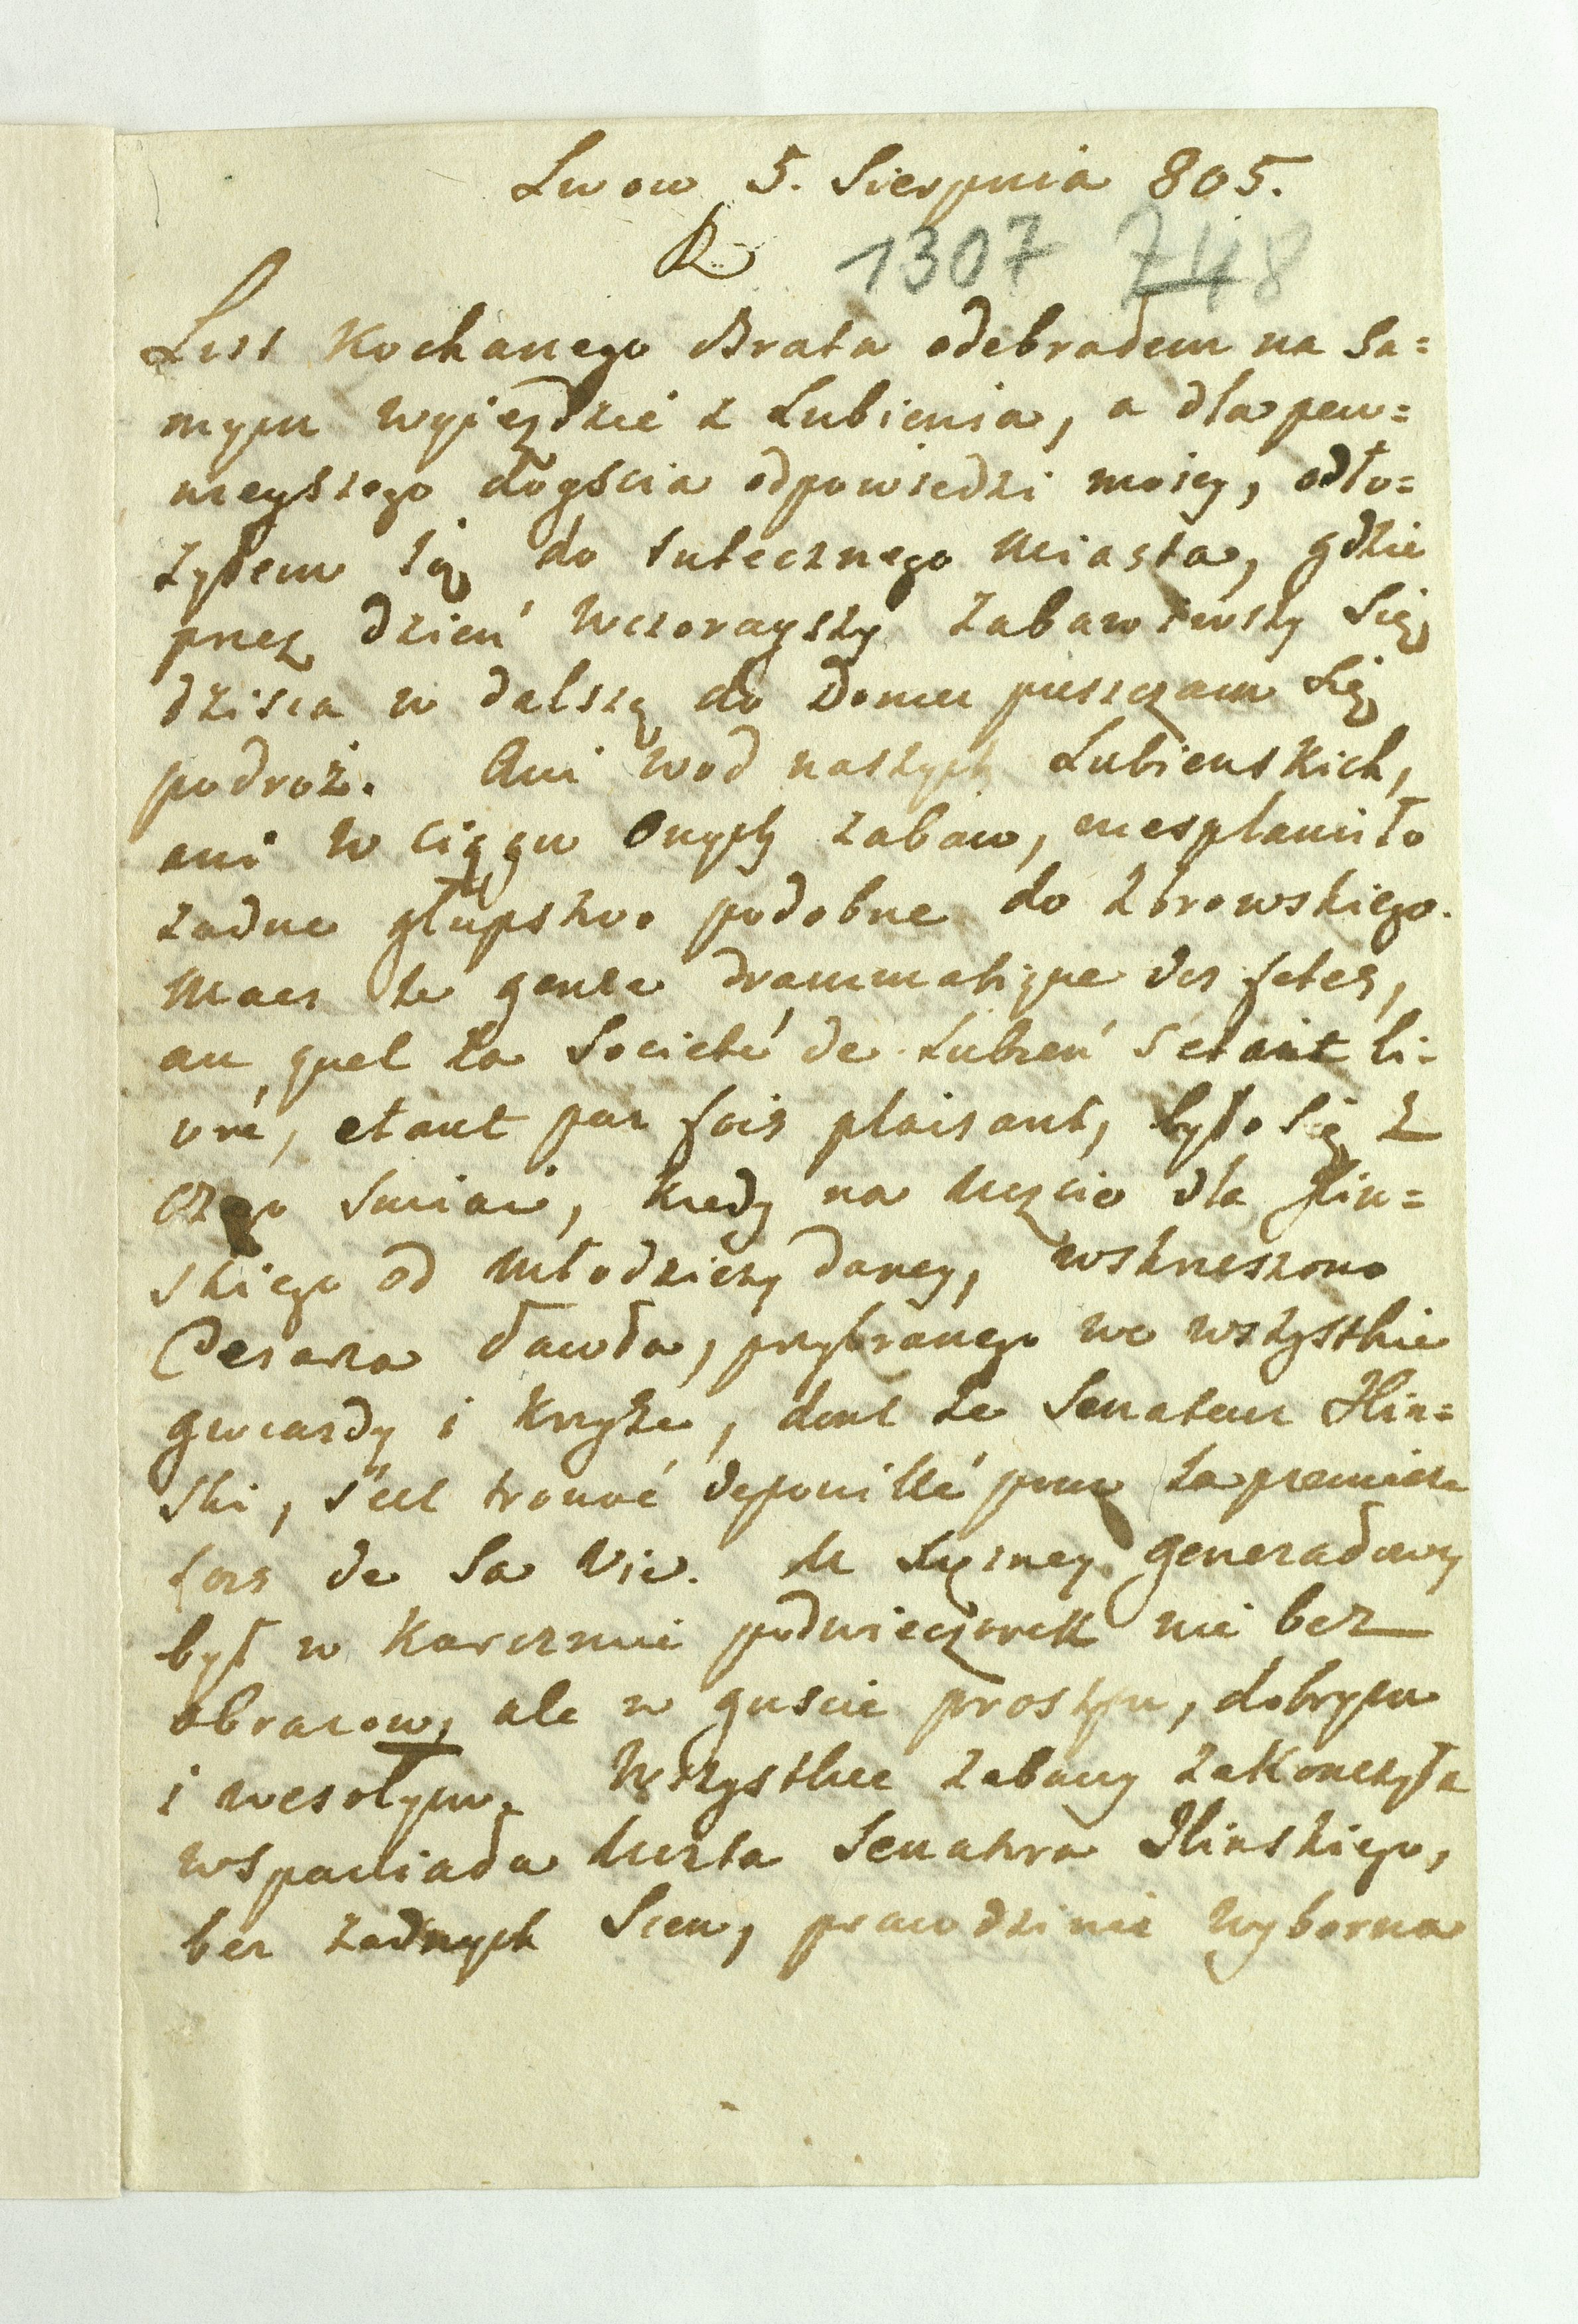 Lwow 5. Sierpnia 805.
R 1307 748
List Kochanego Brata odebrałem na sa=
mym wyjezdzie z Lubienia, a dla pew=
nieyszego doyścia odpowiedzi moiey, odło=
żyłem ią do tutecznego Miasta, gdzie
przez dzień wczorayszy zabawiwszy się
dzisia w dalszą do Domu puszczam się
podroż. Ani wod naszych Lubienskich,
ani w ciągu onych zabaw, niesplamiło
żadne głupstwo podobne do Zbrowskiego.
Mais le genre drammatique des fetes,
au quel la Societé de Lubień s'etait li=
vré, etant par fois plaisant, było się z
czego smiać, kiedy na Uczcie dla Ilin=
skiego od Młodzieży daney, wskrzeszono
Cesarza Pawła, przybranego we wszystkie
gwiazdy i krzyże, dont le Senateur Ilin=
ski, s'est trouvé depouillé pour la premiere
fois de sa vie. U generałowy
był w Karczmie podwieczorek nie bez
obrazow, ale w guscie prostym, dobrym
i wesołym. Wszystkie zabawy zakonczyła
wspaniała Uczta Senatora Ilinskiego,
bez żadnych Scen, prawdziwie wyborna